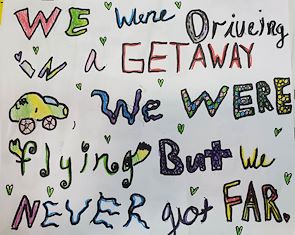 WE Were Driveing
in a GETAWAY
, We WERE
flying But We
NEVER got FAR.